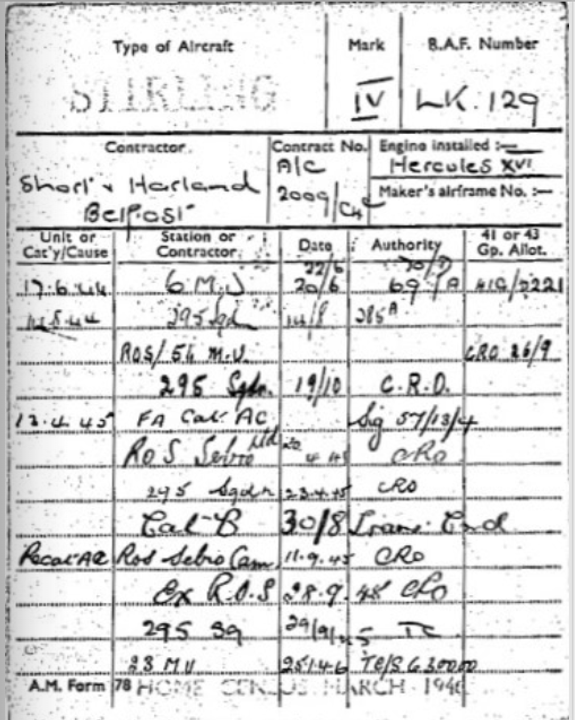 Type of Aircraft Mark B.A.F. Number
STIRLING IV LK. 129
Contractor. Contract No. Engine installed :—
A/C Hercules XVI
Short & Harland 2009/C4c Maker's airframe No. :—
Belfast
Unit or Station or 41 or 43
Cat'y/Cause Contractor. Date Authority Gp. Allot.
22/6
17.6.44 6 M.U 20/6 69 A 41G/2221
14.8.44 295 Sqd 14/8 285A
ROS/54 M.U. CRO 26/9
295 Sqdn. 19/10 C.R.O.
13.4.45 FA Cat. AC Sig 57/13/4
RoS Sebro Ltd 4 45 CRO
295 Sqdn 23.4.45 CRO
Cat B 30/8 Trans. Cmd
Recat AC Ros Sebro Cam. 11.9.45 CRO
Ex R.O.S 28.9.45 CRO
295 Sq 29/9/45 TC
23 MU 25.1.46 TC/S.G30000
A.M. Form 78 HOME CENSUS MARCH 1946